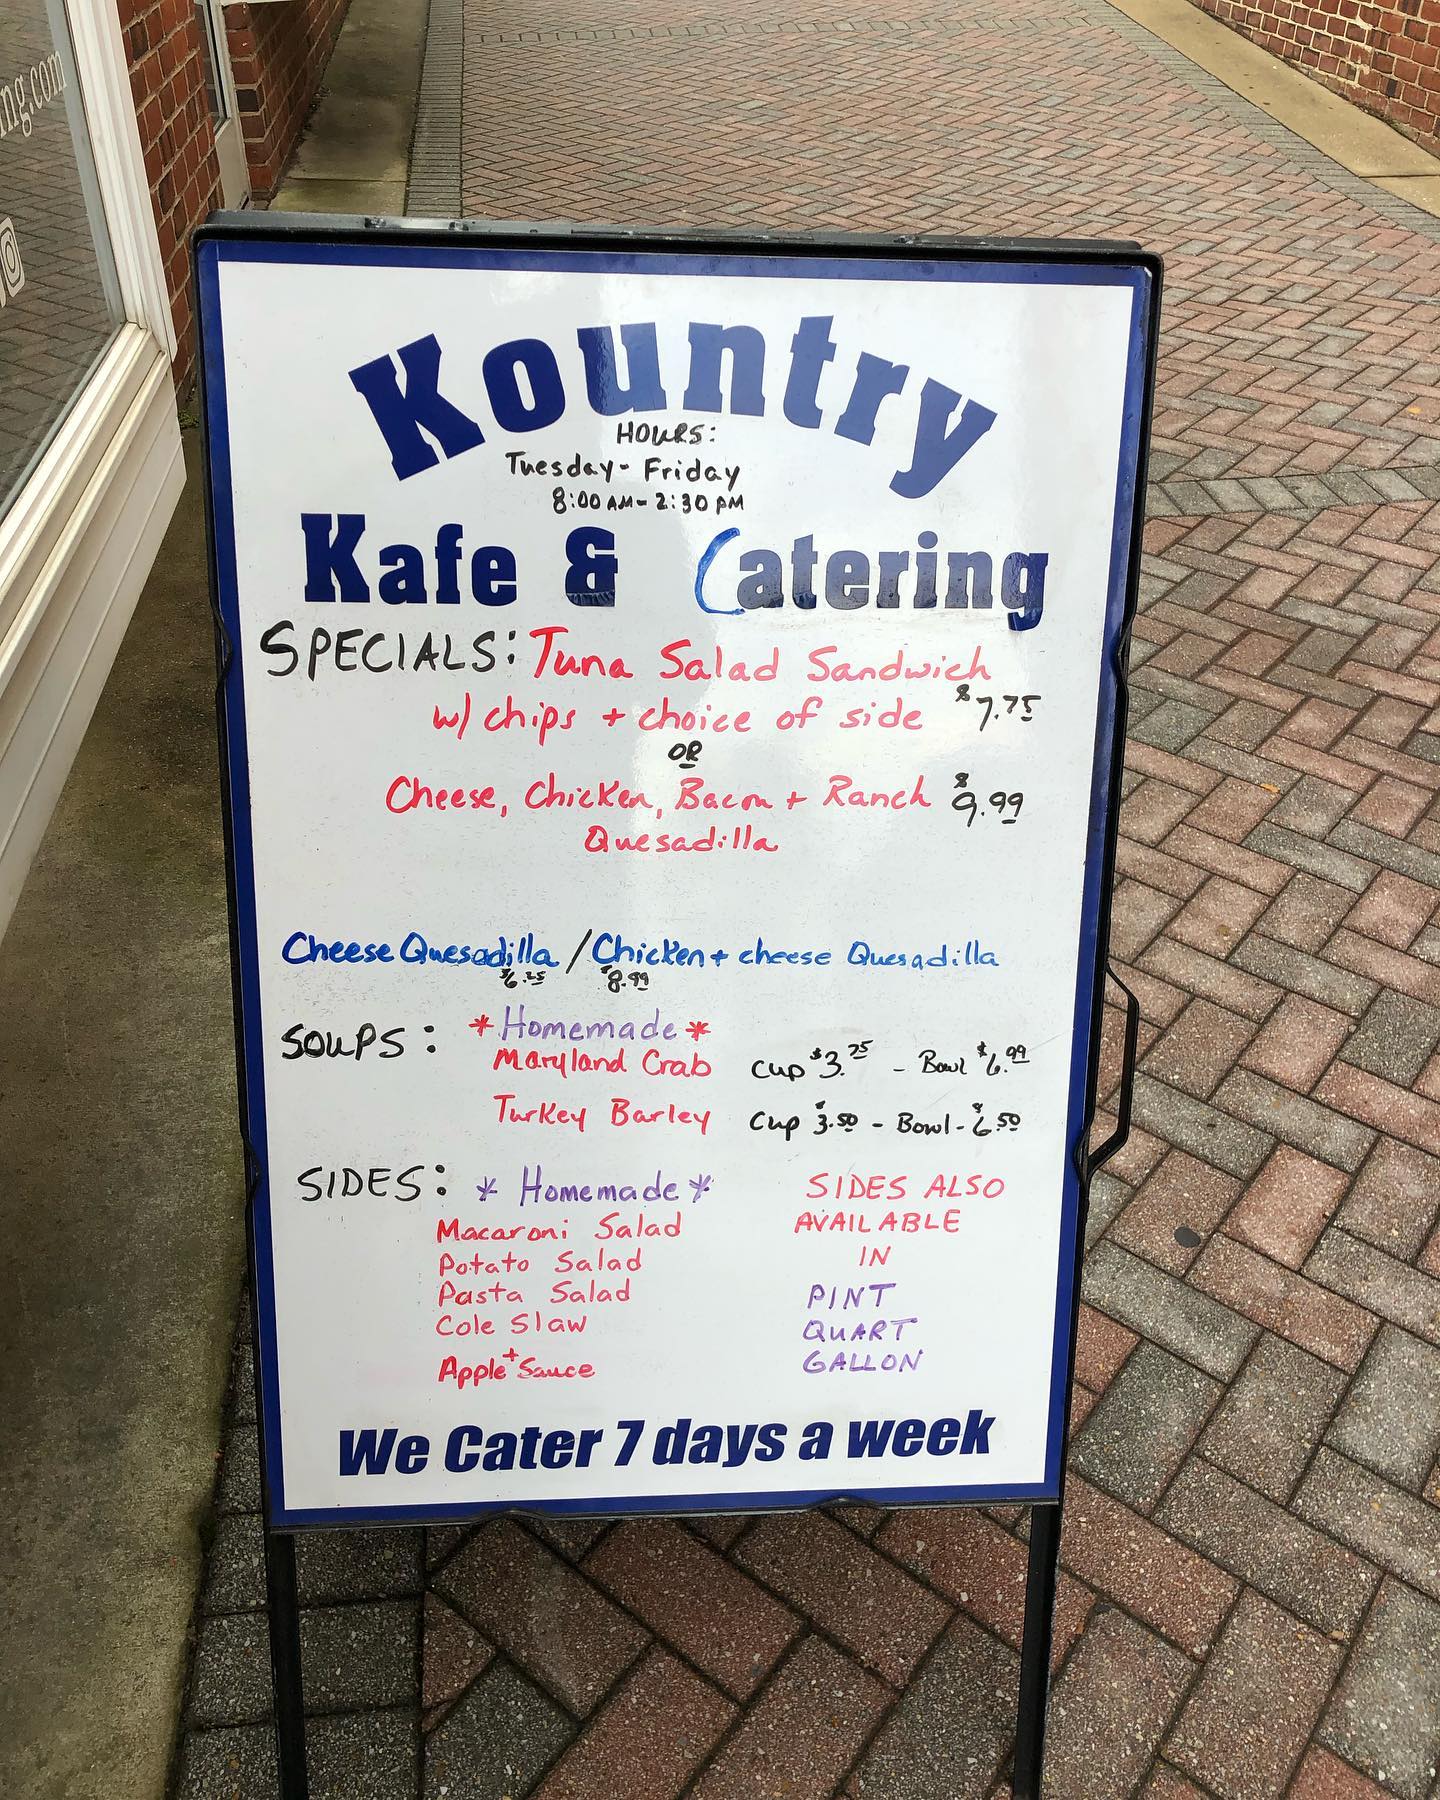 ng.com
Kountry
HOURS:
Tuesday - Friday
8:00 AM - 2:30 PM
Kafe & Catering
SPECIALS: Tuna Salad Sandwich
w/ chips + choice of side $7.75
OR
Cheese, Chicken, Bacon + Ranch $9.99
Quesadilla
Cheese Quesadilla / Chicken + cheese Quesadilla
$6.25 $8.99
SOUPS: *Homemade*
Maryland Crab Cup $3.75 - Bowl $6.99
Turkey Barley Cup $3.50 - Bowl - $6.50
SIDES: * Homemade * SIDES ALSO
Macaroni Salad AVAILABLE
Potato Salad IN
Pasta Salad PINT
Cole Slaw QUART
Apple + Sauce GALLON
We Cater 7 days a week